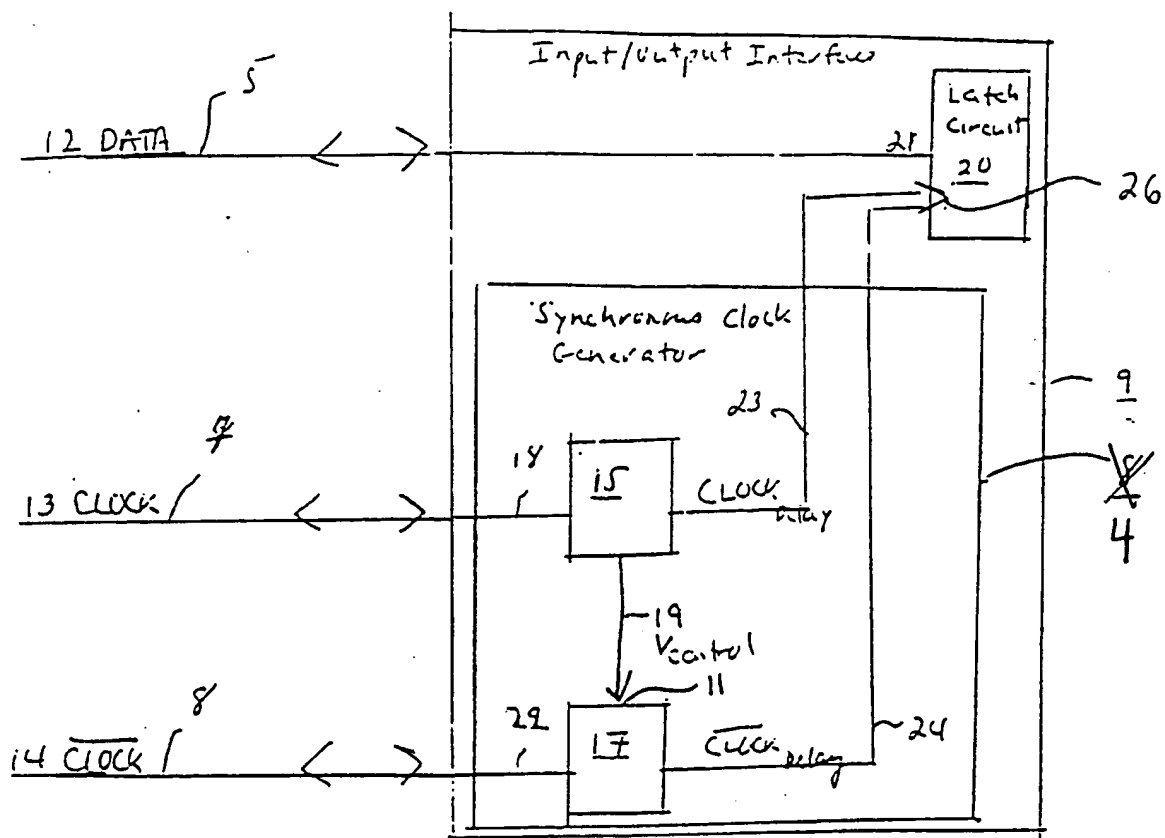 Input/Output Interface
5
Latch
Circuit
20
12 DATA
21
26
Synchronous Clock
Generator
23
9
7
18
15
13 CLOCK
CLOCK
Delay
4
19
Vcontrol
11
8
22
17
24
14 CLOCK
CLOCK
Delay